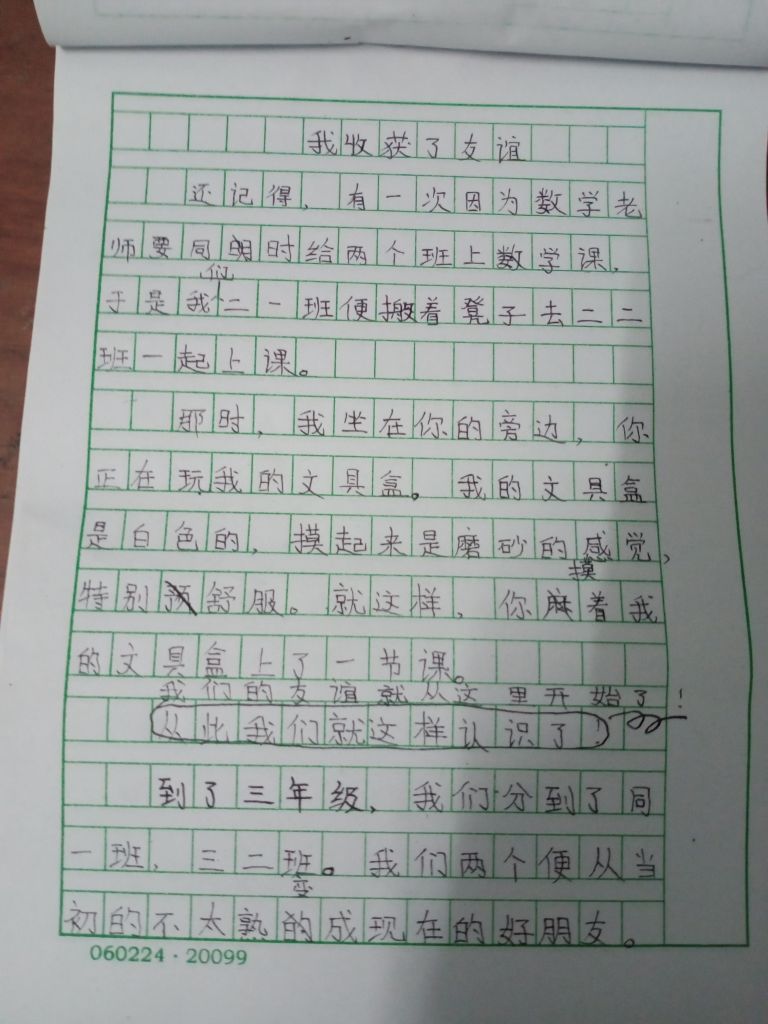 我收获了友谊
还记得，有一次因为数学老
师要同时给两个班上数学课，
们
于是我二一班便搬着凳子去二二
班一起上课。
那时，我坐在你的旁边，你
正在玩我的文具盒。我的文具盒
是白色的，摸起来是磨砂的感觉，
摸
特别舒服。就这样，你着我
的文具盒上了一节课。
我们的友谊就从这里开始了！
从此我们就这样认识了！
到了三年级，我们分到了同
一班，三二班。我们两个便从当
变
初的不太熟的成现在的好朋友。
060224·20099